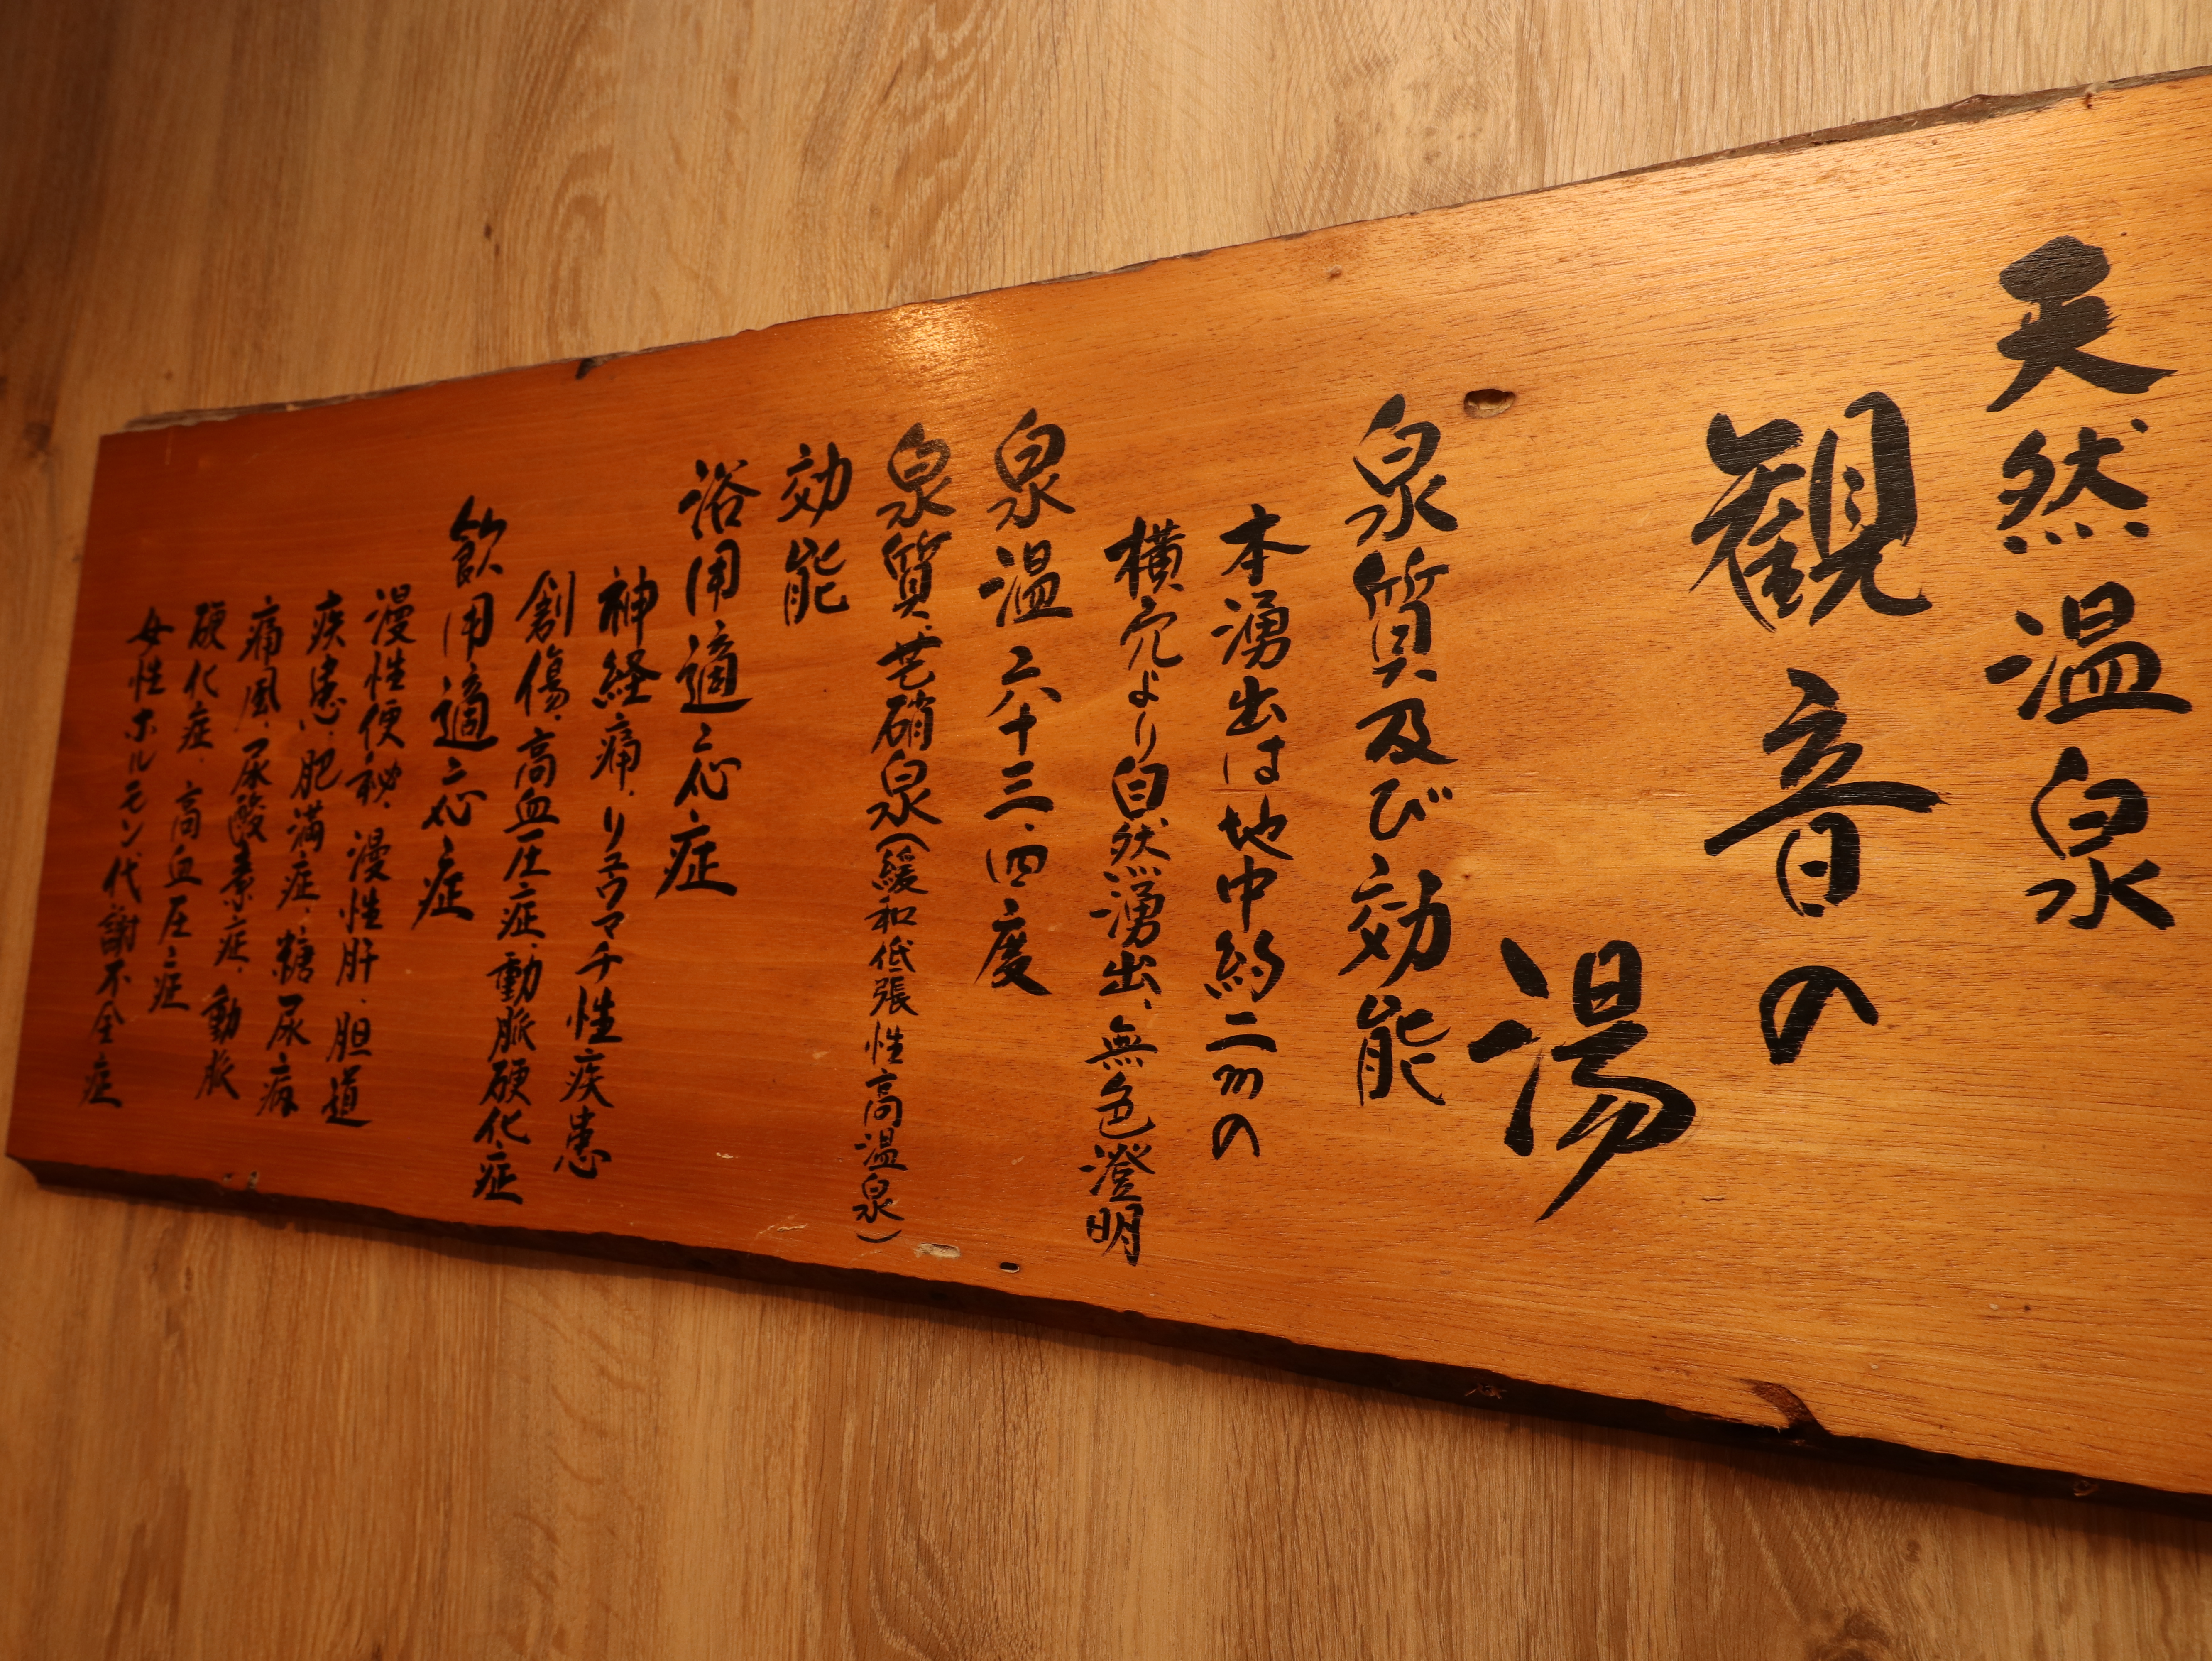 天然温泉
観音の
湯
泉質及び効能
本湧出は地中約二mの
横穴より自然湧出、無色澄明
泉温 六十三、四度
泉質、芒硝泉(緩和低張性高温泉)
効能
浴用適応症
神経痛、リュウマチ性疾患
創傷、高血圧症、動脈硬化症
飲用適応症
慢性便秘、慢性肝、胆道
疾患、肥満症、糖尿病
痛風、尿酸素症、動脈
硬化症、高血圧症
女性ホルモン代謝不全症